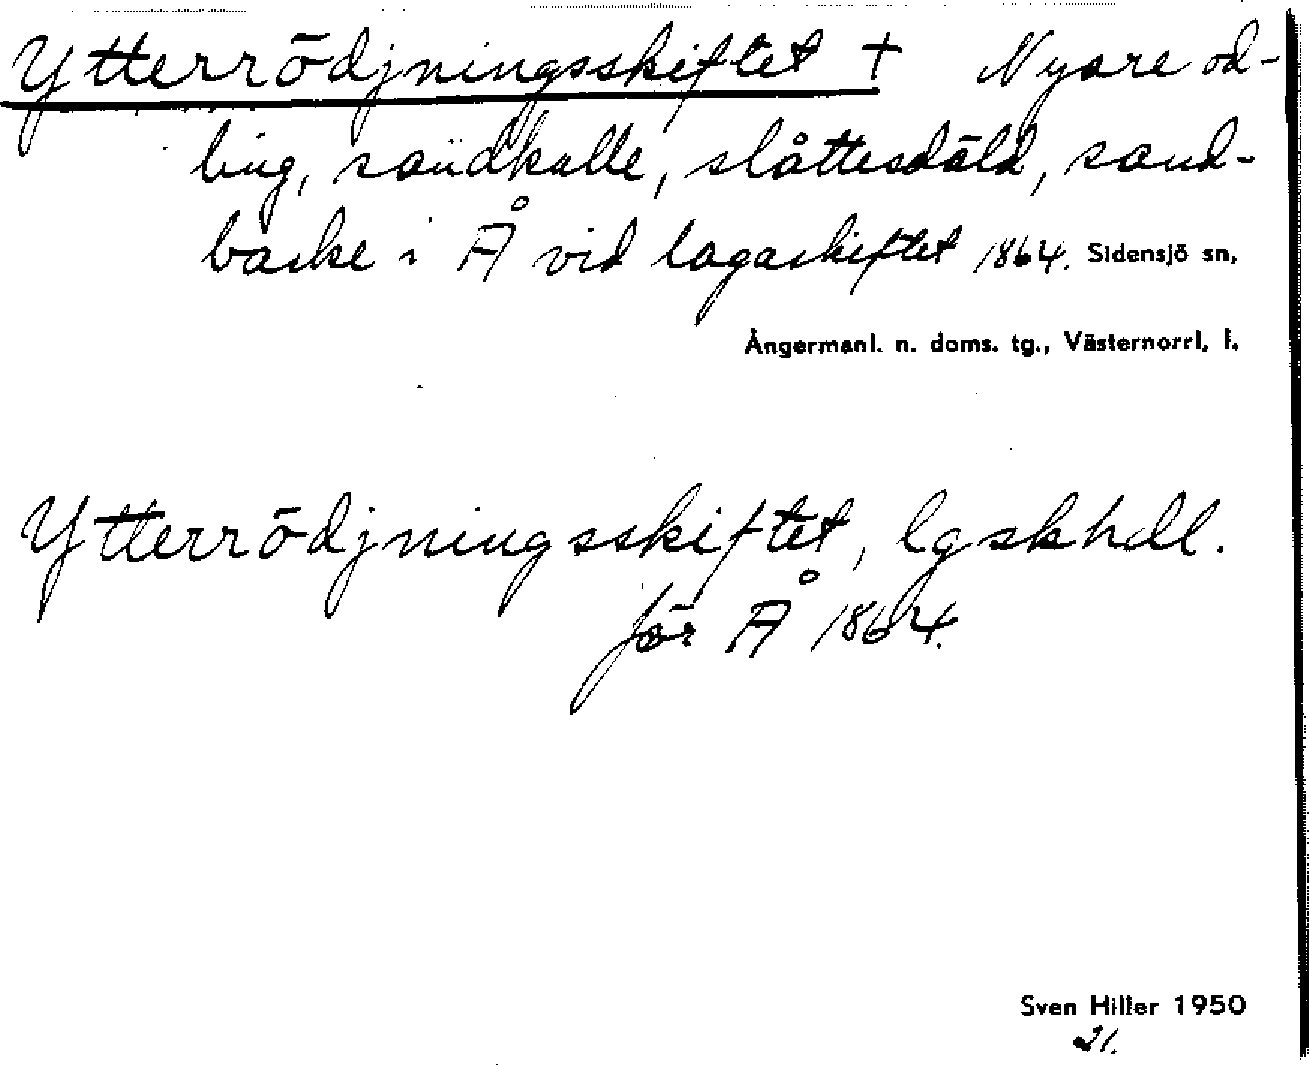 Ytterrödjningsskiftet † Nyare od-
ling, sandkulle, slåttesdäld, sand-
backe i Å vid lagaskiftet 1864. Sidensjö sn,
Ångermanl. n. doms. tg., Västernorrl. l.
Ytterrödjningsskiftet, lgskhdl.
för Å 1864.
Sven Hiller 1950
21.